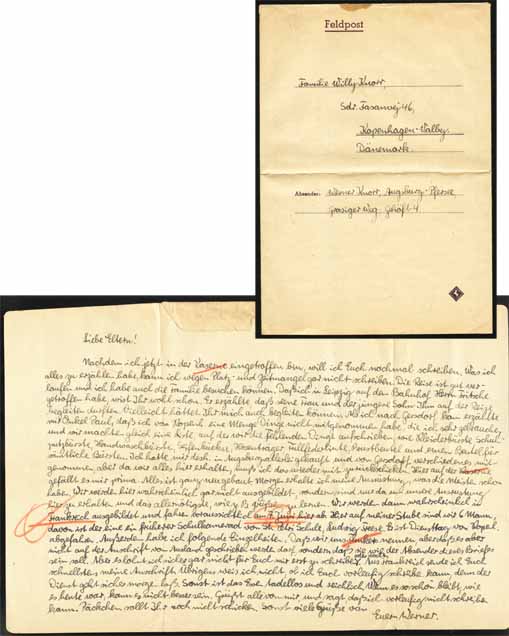 Feldpost
Familie Willy Knorr,
Sdr. Fasanvej 46,
Kopenhagen-Valby.
Dänemark.
Absender: Werner Knorr, Augsburg-Pfersee,
Grasiger Weg. Gehöft 4
Liebe Eltern!
Nachdem ich jetzt in der Kaserne eingetroffen bin, will ich Euch nochmal schreiben. Was ich
alles zu erzählen habe, kann ich wegen Platz- und Zeitmangel gar nicht schreiben. Die Reise ist gut ver-
laufen und ich habe auch die Familie besuchen können. Daß ich in Leipzig auf dem Bahnhof Herrn Fritsche
getroffen habe, wißt Ihr wohl schon. Er erzählte daß seine Frau und der jüngste Sohn ihn auf der Reise
begleiten durften. Vielleicht hättet Ihr mich auch begleiten können. Als ich nach kam erzählte
mir Onkel Paul, daß ich von Kopenh. eine Menge Dinge nicht mitgenommen habe, die ich sehr gebrauche,
und wir machten gleich eine Liste auf der wir die fehlenden Dinge aufschrieben wie Kleiderbürste, Schuh-
putzbürste, Handwaschbürste, Hosenträger, Füllfederhalter, und einen Beutel für
sämtliche Bürsten. Ich hatte mir doch in Augsburg alles gekauft und von verschiedenes mit-
genommen, aber da wir alles hier erhalten, muß ich das wieder mit zurückschicken. Hier auf der Kaserne
gefällt es mir prima. Alles ist ganz neugebaut. Morgen erhalte ich meine Ausrüstung, was die meisten schon
haben. Wir werden hier wahrscheinlich gar nicht ausgebildet, sondern sind nur da um unsere Ausrüstung
hier zu erhalten und das allernötigste, wie z. B. grüßen zu lernen. Wir werden dann wahrscheinlich in
Frankreich ausgebildet und fahren voraussichtlich am 7. Juni hier ab. Hier auf meiner Stube sind wir 6 Mann,
davon ist der eine ein früherer Schulkamerad von der St. Petri Schule, Ludwig Er ist Dienstag von Kopenh.
abgefahren. Außerdem habe ich folgende Einzelheiten. Daß wir uns nennen, aber daß es aber
nicht auf der Anschrift von Ausland geschrieben werde darf, sondern daß sie wie der Absender dieses Briefes
sein soll. Aber es lohnt sich sicher gar nicht für Euch mir erst zu schreiben. Aus Frankreich sende ich Euch
schnellstens meine Anschrift. Übrigens weiß ich nicht ob ich Euch vorläufig schreibe kann, denn der
Dienst geht sicher morgen los. Sonst ist das Essen tadellos und reichlich. Wenn es so schön bleibt, wie
es heute war, kann es nicht besser sein. Grüßt alle von mir und sagt daß ich vorläufig nicht schreiben
kann. Päckchen sollt ihr noch nicht schicken. Sonst viele Grüße von
Euern Werner.